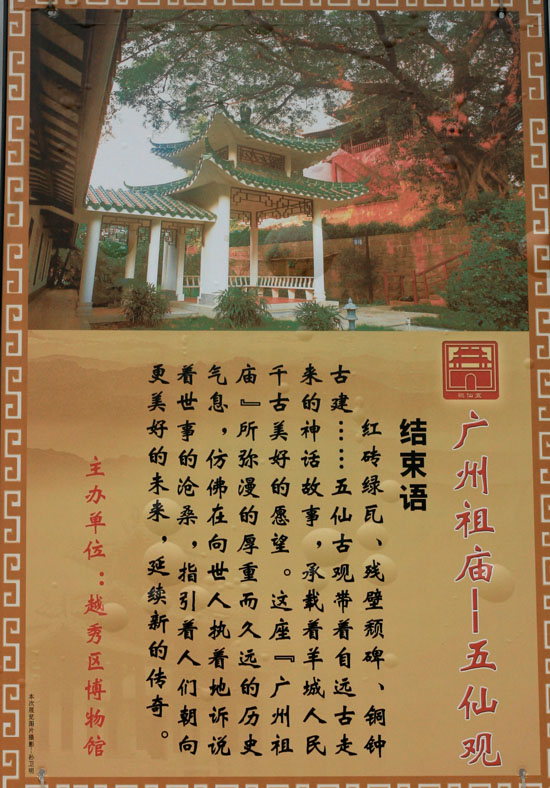 广州祖庙—五仙观
结束语
红砖绿瓦、残壁颓碑、铜钟
古建……五仙古观带着自远古走
来的神话故事，承载着羊城人民
千古美好的愿望。这座『广州祖
庙』所弥漫的厚重而久远的历史
气息，仿佛在向世人执着地诉说
着世事的沧桑，指引着人们朝向
更美好的未来，延续新的传奇。
主办单位：越秀区博物馆
本次展览图片摄影—孙卫明